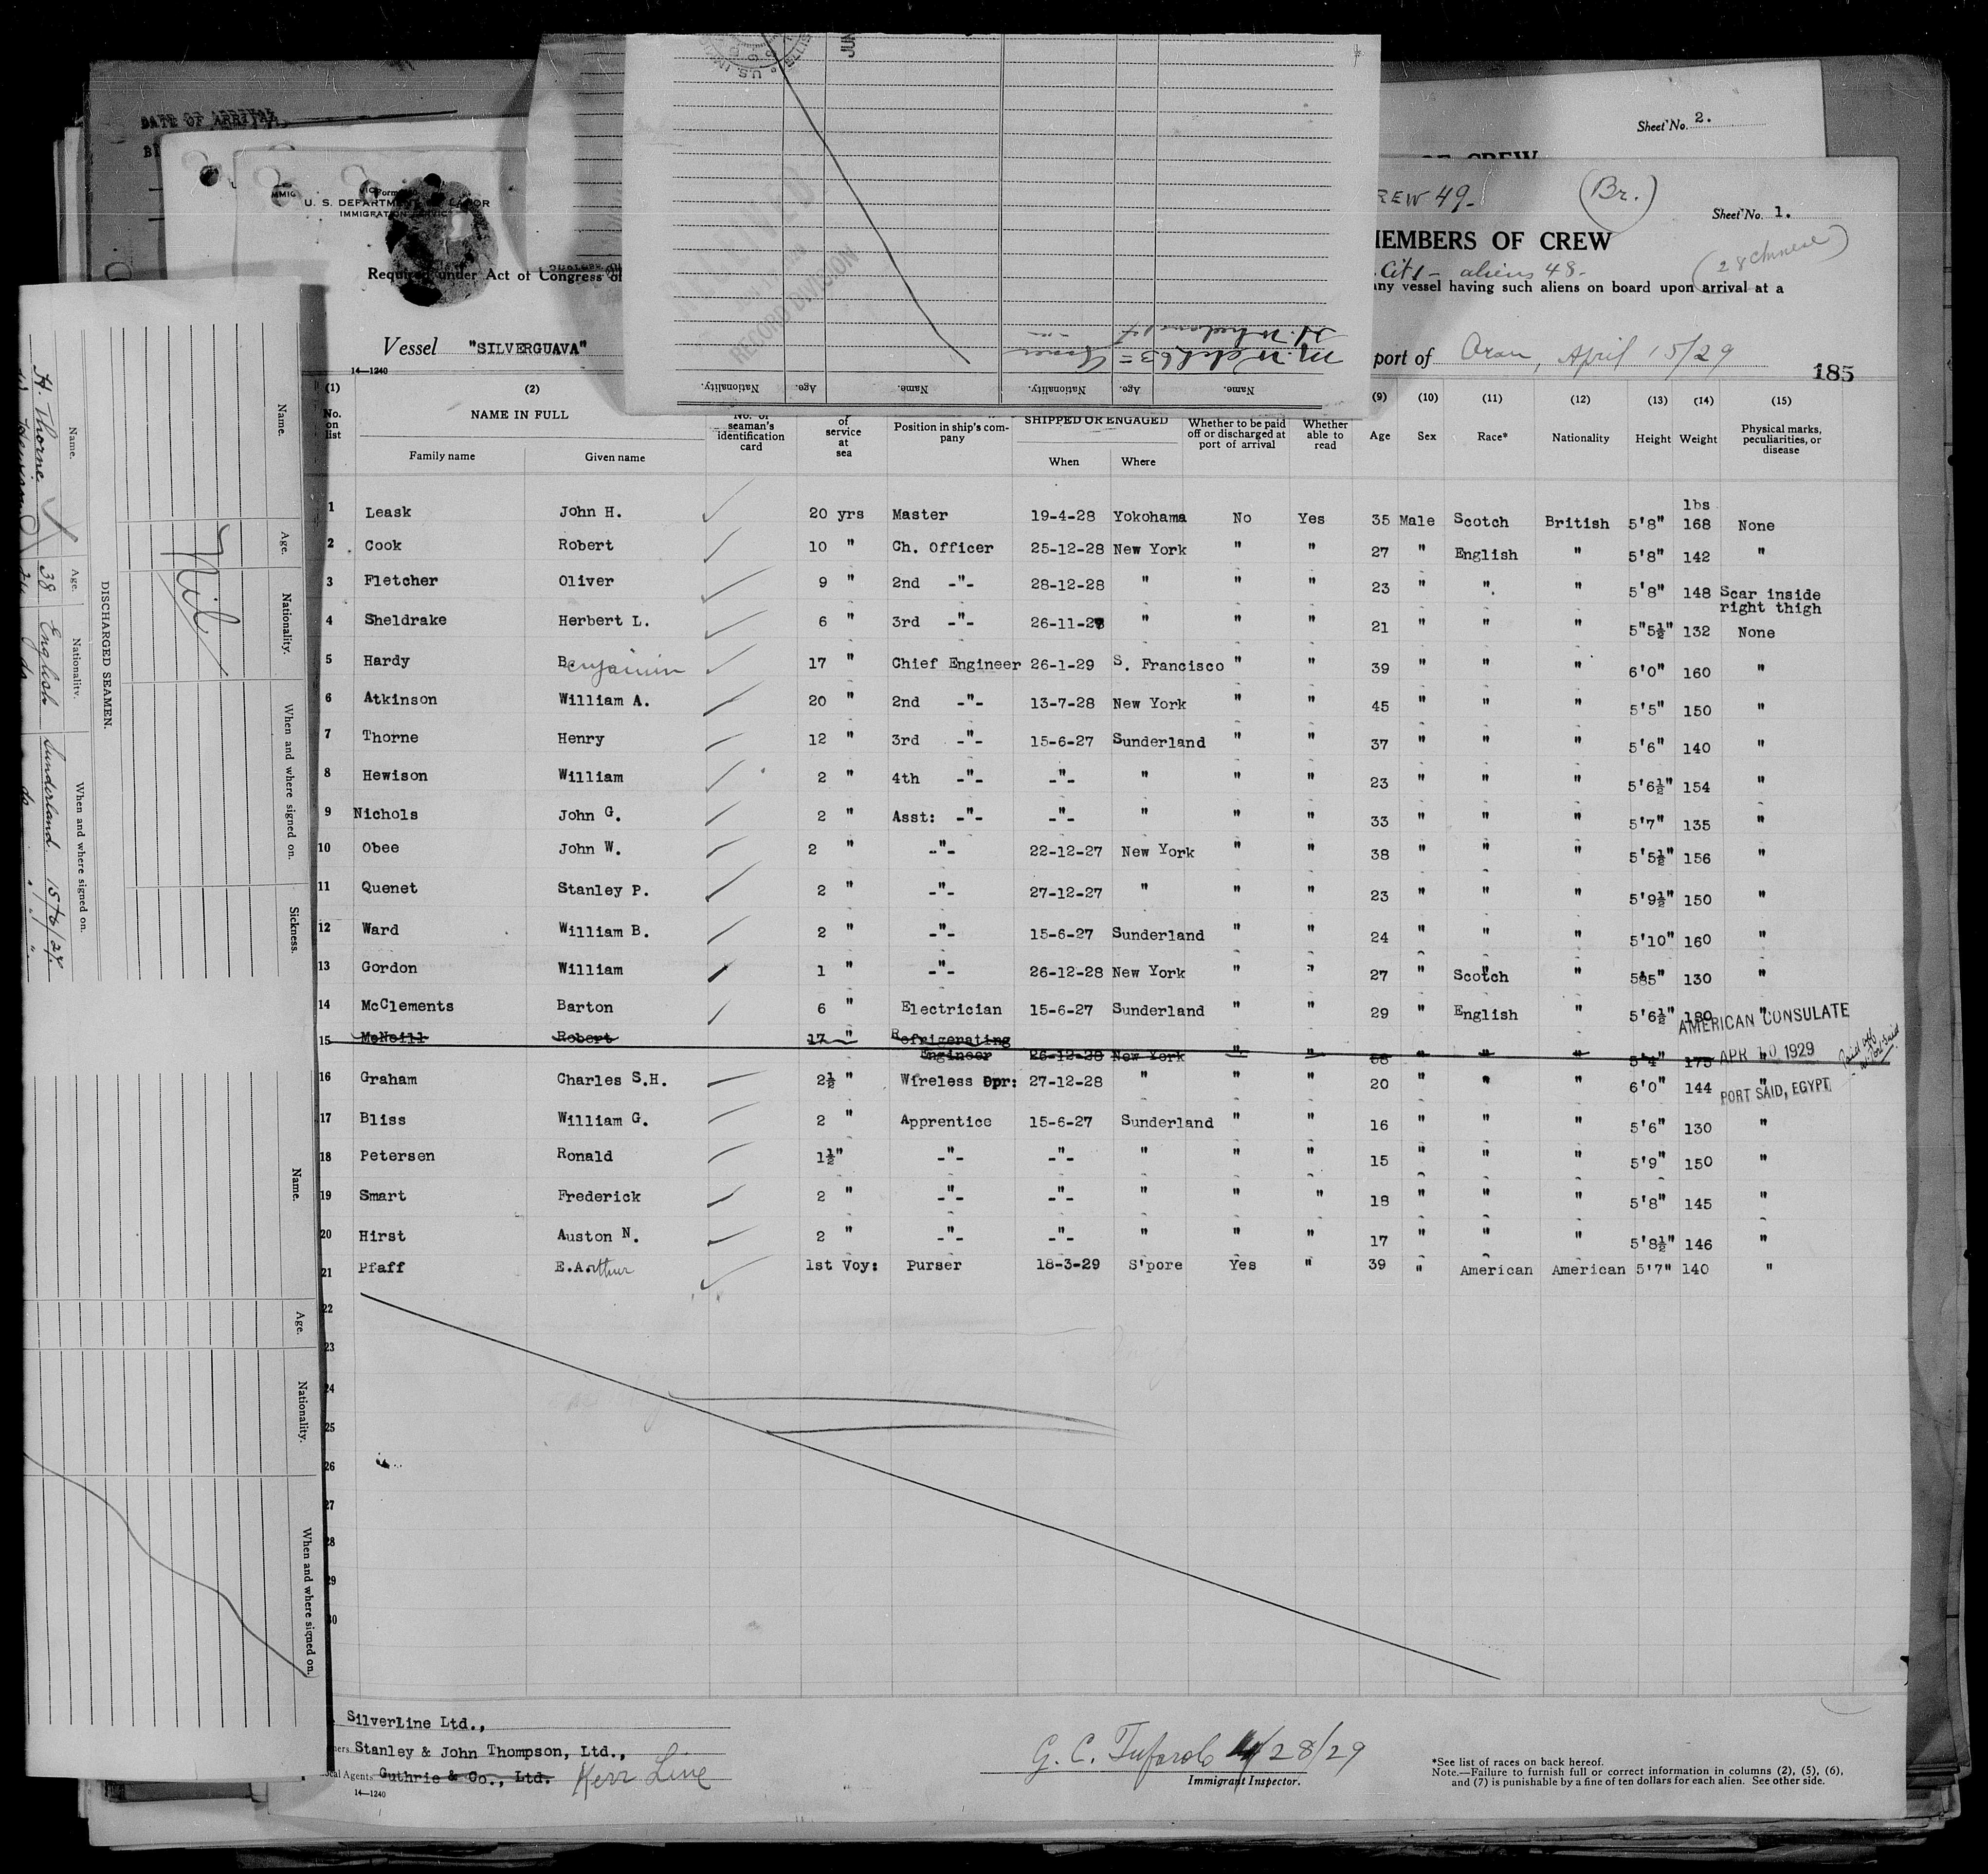 DATE OF ARRIVAL
Sheet No. 2.
OF CREW
U. S. DEPARTMENT OF LABOR
IMMIGRATION SERVICE
Required under Act of Congress of
CREW 49-
(Br.)
Sheet No. 1.
MEMBERS OF CREW
Cit 1 - aliens 48-
(28 Chinese)
any vessel having such aliens on board upon arrival at a
Vessel "SILVERGUAVA"
port of Oran, April 15/29
185
14—1240
RECORD DIVISION
Name. Age. Nationality. Name. Age. Nationality.
(1) (2) (9) (10) (11) (12) (13) (14) (15)
No. on list NAME IN FULL No. of seaman's identification card of service at sea Position in ship's company SHIPPED OR ENGAGED Whether to be paid off or discharged at port of arrival Whether able to read Age Sex Race* Nationality Height Weight Physical marks, peculiarities, or disease
Family name Given name When Where
lbs
1 Leask John H. 20 yrs Master 19-4-28 Yokohama No Yes 35 Male Scotch British 5'8" 168 None
2 Cook Robert 10 " Ch. Officer 25-12-28 New York " " 27 " English " 5'8" 142 "
3 Fletcher Oliver 9 " 2nd -"- 28-12-28 " " " 23 " " " 5'8" 148 Scar inside right thigh
4 Sheldrake Herbert L. 6 " 3rd -"- 26-11-28 " " " 21 " " " 5"5½" 132 None
5 Hardy Benjamin 17 " Chief Engineer 26-1-29 S. Francisco " " 39 " " " 6'0" 160 "
6 Atkinson William A. 20 " 2nd -"- 13-7-28 New York " " 45 " " " 5'5" 150 "
7 Thorne Henry 12 " 3rd -"- 15-6-27 Sunderland " " 37 " " " 5'6" 140 "
8 Hewison William 2 " 4th -"- -"- " " " 23 " " " 5'6½" 154 "
9 Nichols John G. 2 " Asst: -"- -"- " " " 33 " " " 5'7" 135 "
10 Obee John W. 2 " -"- 22-12-27 New York " " 38 " " " 5'5½" 156 "
11 Quenet Stanley P. 2 " -"- 27-12-27 " " " 23 " " " 5'9½" 150 "
12 Ward William B. 2 " -"- 15-6-27 Sunderland " " 24 " " " 5'10" 160 "
13 Gordon William 1 " -"- 26-12-28 New York " " 27 " Scotch " 5'5" 130 "
14 McClements Barton 6 " Electrician 15-6-27 Sunderland " " 29 " English " 5'6½" 180 "
15 McNeill Robert 17 " Refrigerating Engineer 26-12-28 New York " " " " " 5'4" 175 "
AMERICAN CONSULATE
APR 10 1929
PORT SAID, EGYPT
Paid off at Port Said
16 Graham Charles S.H. 2½ " Wireless Opr: 27-12-28 " " " 20 " " " 6'0" 144 "
17 Bliss William G. 2 " Apprentice 15-6-27 Sunderland " " 16 " " " 5'6" 130 "
18 Petersen Ronald 1½" -"- -"- " " " 15 " " " 5'9" 150 "
19 Smart Frederick 2 " -"- -"- " " " 18 " " " 5'8" 145 "
20 Hirst Auston N. 2 " -"- -"- " " " 17 " " " 5'8½" 146 "
21 Pfaff E.Arthur 1st Voy: Purser 18-3-29 S'pore Yes " 39 " American American 5'7" 140 "
22
23
24
25
26
27
28
29
30
SilverLine Ltd.,
Stanley & John Thompson, Ltd.,
Local Agents Guthrie & Co., Ltd. Kerr Line
14—1240
4/28/29
Immigrant Inspector.
*See list of races on back hereof.
Note.—Failure to furnish full or correct information in columns (2), (5), (6),
and (7) is punishable by a fine of ten dollars for each alien. See other side.
Name. Age. Nationality. When and where signed on. Sickness.
Nil
DISCHARGED SEAMEN.
Name. Age. Nationality. When and where signed on.
H. Thorne 38 English Sunderland 15/6/27
Name. Age. Nationality. When and where signed on.